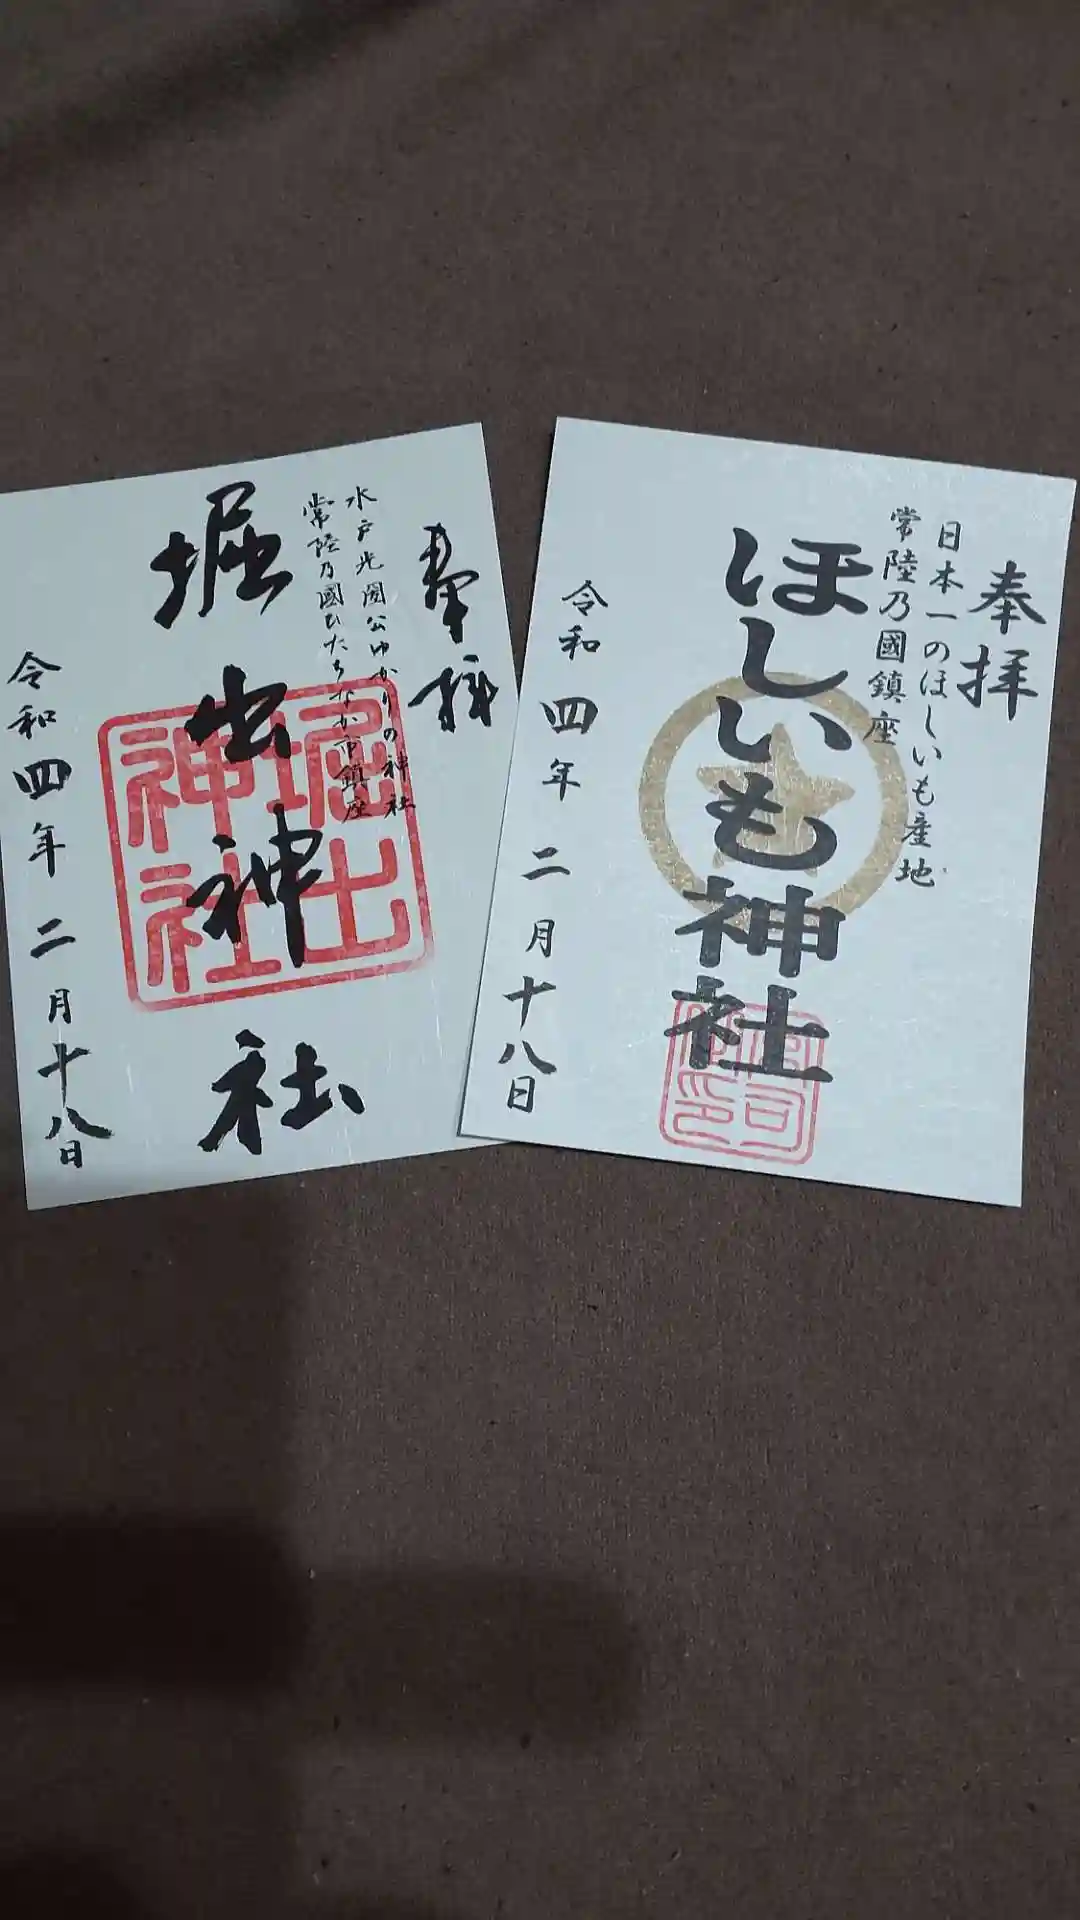 奉拝
水戸光圀公ゆかりの神社
常陸乃國ひたちなか市鎮座
堀出神社
堀出神社
令和四年二月十八日
奉拝
日本一のほしいも産地
常陸乃國鎮座
ほしいも神社
令和四年二月十八日